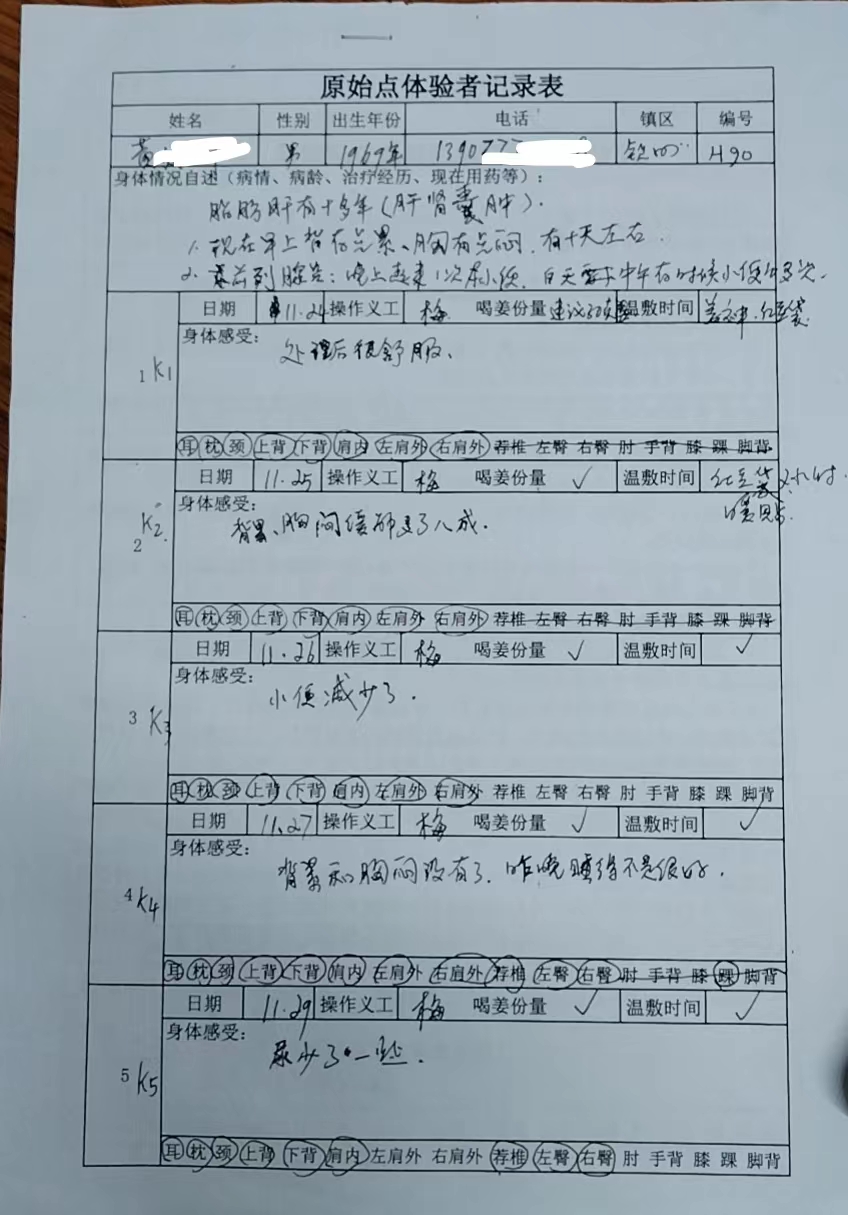 原始点体验者记录表
姓名 性别 出生年份 电话 镇区 编号
黄 男 1969年 13907 H90
身体情况自述（病情、病龄、治疗经历、现在用药等）：
脂肪肝有十多年（肝肾囊肿）.
1. 现在早上背有点累、胸有点闷，有十天左右.
2. 晚上起来1次 小便，白天 中午有时候小便 多次.
日期 11.24 操作义工 梅 喝姜份量 建议 温敷时间 红豆袋
1 K1
身体感受：
处理后很舒服、
耳 枕 颈 上背 下背 肩内 左肩外 右肩外 荐椎 左臀 右臀 肘 手背 膝 踝 脚背
日期 11.25 操作义工 梅 喝姜份量 ✓ 温敷时间 红豆袋 2小时
暖贴
2 K2
身体感受：
背累、胸闷 了八成.
耳 枕 颈 上背 下背 肩内 左肩外 右肩外 荐椎 左臀 右臀 肘 手背 膝 踝 脚背
日期 11.26 操作义工 梅 喝姜份量 ✓ 温敷时间 ✓
3 K3
身体感受：
小便减少了.
耳 枕 颈 上背 下背 肩内 左肩外 右肩外 荐椎 左臀 右臀 肘 手背 膝 踝 脚背
日期 11.27 操作义工 梅 喝姜份量 ✓ 温敷时间 ✓
4 K4
身体感受：
背累和胸闷没有了. 昨晚睡得不是很好.
耳 枕 颈 上背 下背 肩内 左肩外 右肩外 荐椎 左臀 右臀 肘 手背 膝 踝 脚背
日期 11.29 操作义工 梅 喝姜份量 ✓ 温敷时间 ✓
5 K5
身体感受：
尿少了一些.
耳 枕 颈 上背 下背 肩内 左肩外 右肩外 荐椎 左臀 右臀 肘 手背 膝 踝 脚背